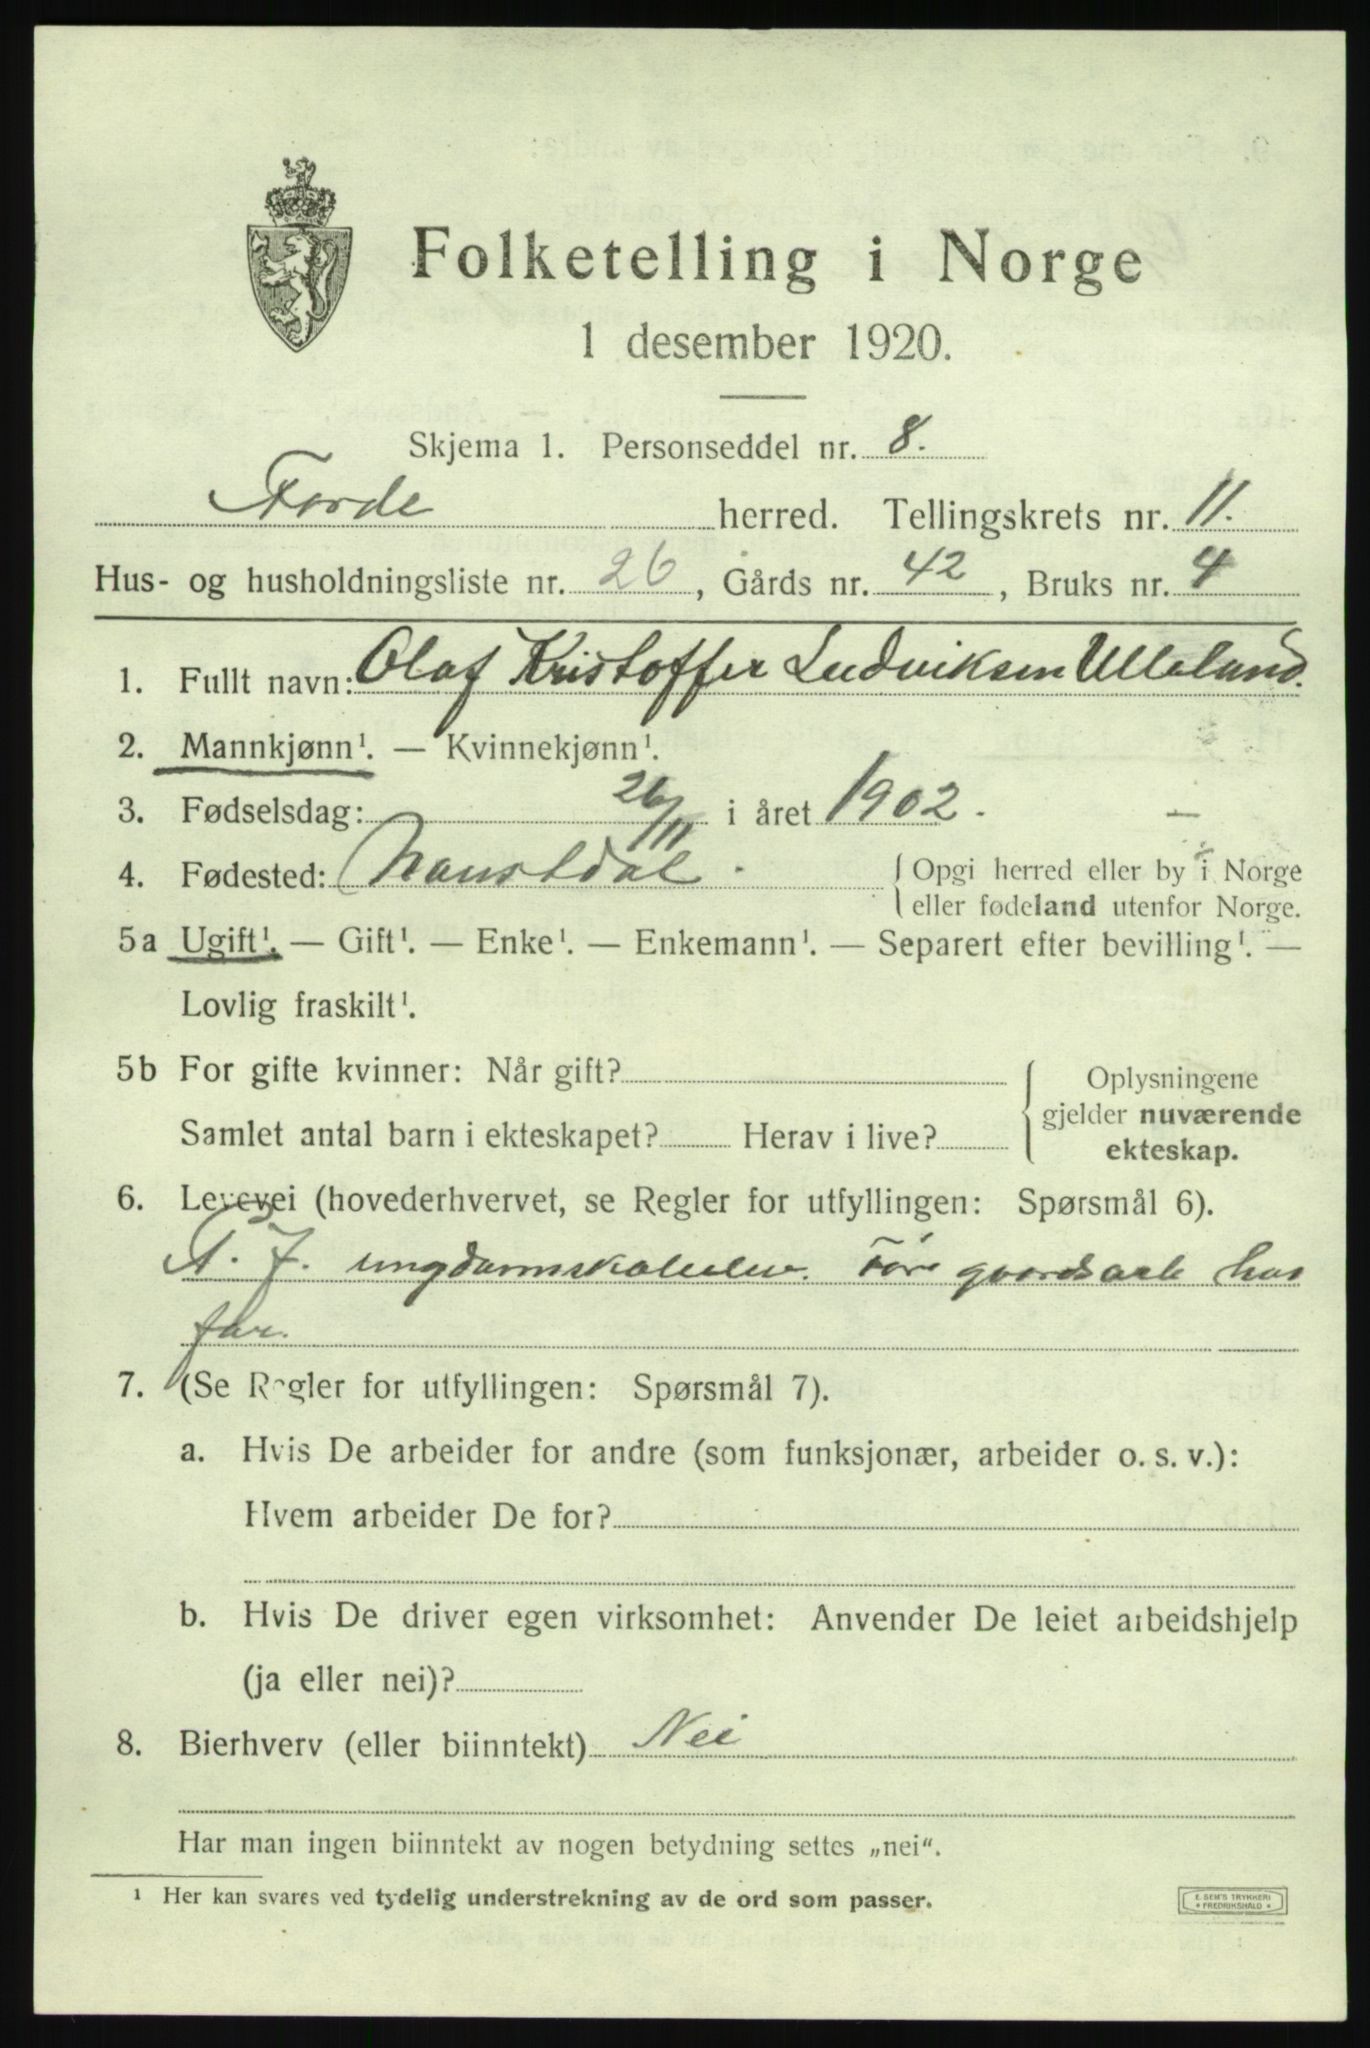 Folketelling i Norge
1 desember 1920.
Skjema 1. Personseddel nr. 8.
Førde herred. Tellingskrets nr. 11.
Hus- og husholdningsliste nr. 26, Gårds nr. 42, Bruks nr. 4
1. Fullt navn: Olaf Kristoffer Ludviksen Ulleland.
2. Mannkjønn¹. — Kvinnekjønn¹.
3. Fødselsdag: 26/11 i året 1902. —
4. Fødested: Naustdal. { Opgi herred eller by i Norge
eller fødeland utenfor Norge.
5a Ugift¹. — Gift¹. — Enke¹. — Enkemann¹. — Separert efter bevilling¹. —
Lovlig fraskilt¹.
5b For gifte kvinner: Når gift? { Oplysningene
Samlet antal barn i ekteskapet? Herav i live? gjelder nuværende
ekteskap.
6. Levevei (hovederhvervet, se Regler for utfyllingen: Spørsmål 6).
ungdomskoleelev. Före gaardsarb hos
far.
7. (Se Regler for utfyllingen: Spørsmål 7).
a. Hvis De arbeider for andre (som funksjonær, arbeider o. s. v.):
Hvem arbeider De for?
b. Hvis De driver egen virksomhet: Anvender De leiet arbeidshjelp
(ja eller nei)?
8. Bierhverv (eller biinntekt) Nei
Har man ingen biinntekt av nogen betydning settes „nei“.
¹ Her kan svares ved tydelig understrekning av de ord som passer.
E. SEM'S TRYKKERI
FREDRIKSHALD